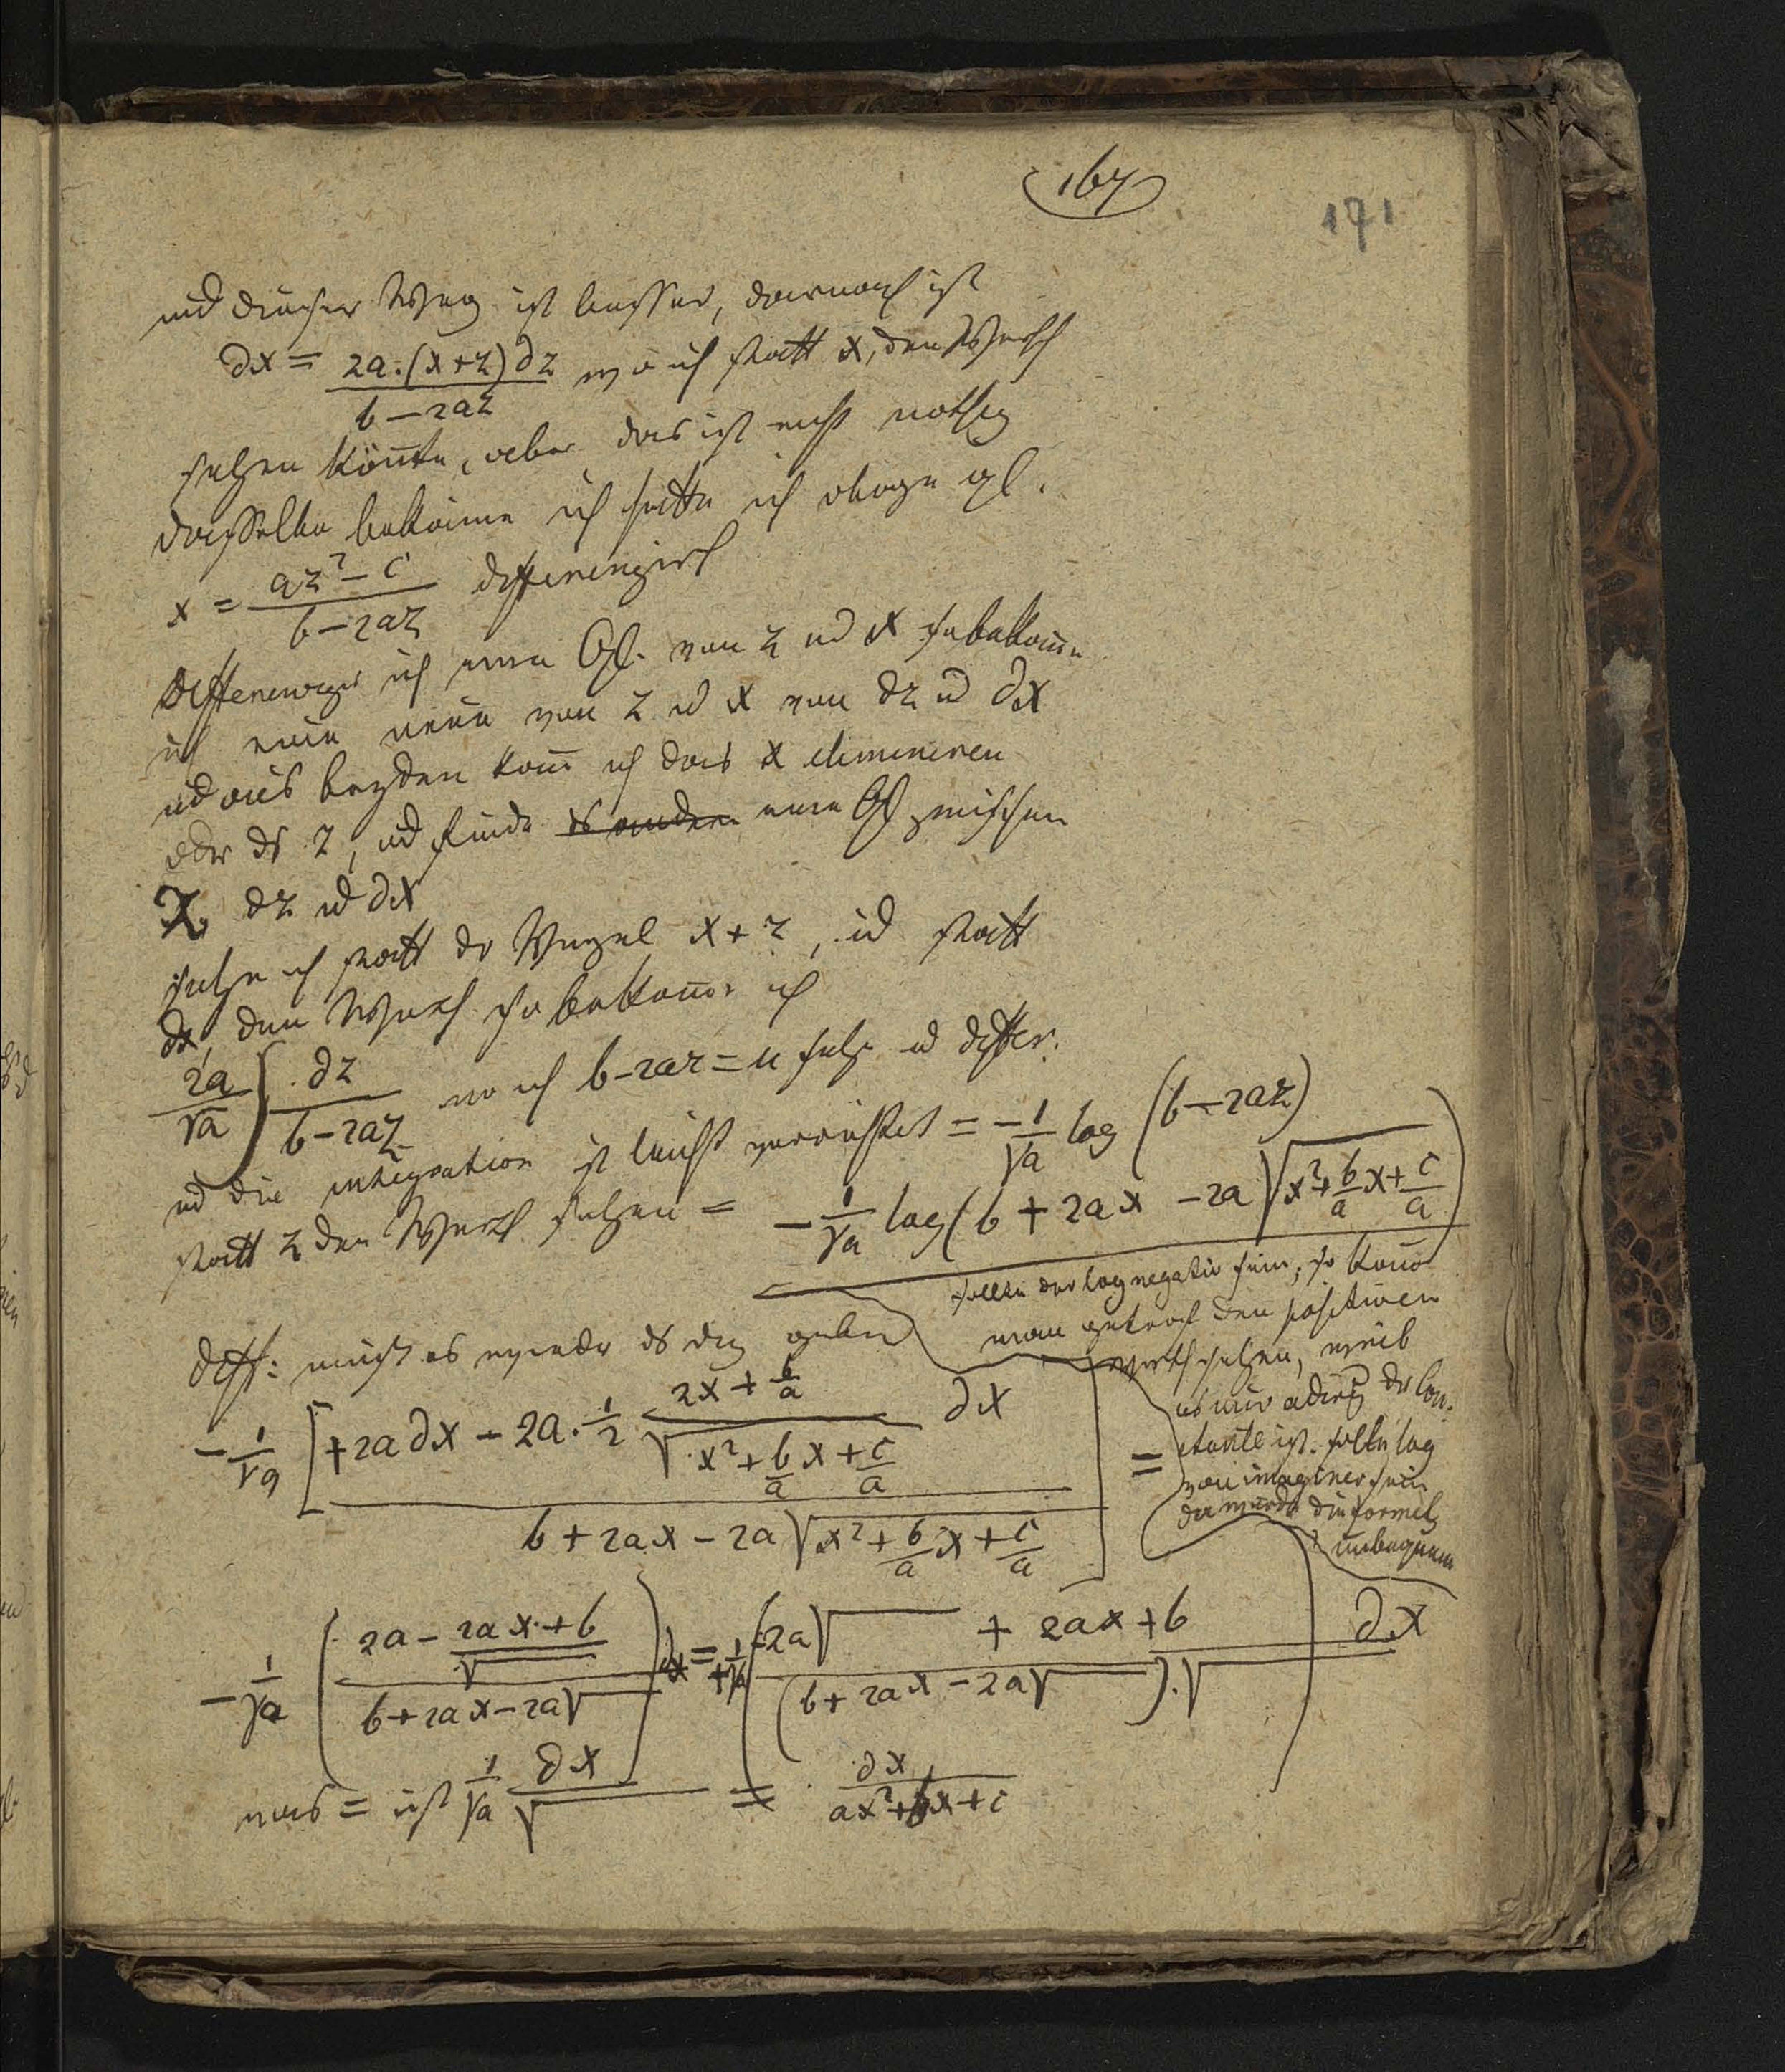 167
171
und dieser Weg ist besser, darnach ist
∂x = 2a.(x+z)∂z / b−2az wo ich statt x, den Werth
setzen könte, aber das ist nicht nothig
dasselbe bekäme ich hätte ich obige gl.
x = az²−c / b−2az differenzirt
Differenzire ich eine Gl. von z und x so bekom̄e
ich eine neue von z ud x von ∂z ud ∂x
ud aus beyden kan̄ ich das x eliminiren
oder ds z, ud finde eine Gl zwischen
z ∂z ud ∂x
setze ich statt der Wurzel x+z, ud statt
∂x, den Werth so bekom̄e ich
2a/√a ∫ ∂z / b−2az wo ich b−2az = u setze ud differ.
ud die integration ist leicht verrichtet = −1/√a log (b−2az)
statt z den Werth setzen = −1/√a log(b + 2ax −2a√x²+b/a x+c/a)
sollte der log negativ sein, so kan̄
man getrost den positiven
werth setzen, weil
es nur addirt der Con-
stante ist. sollte log
von imaginer sein
da würde die formel
unbequem
Diff: muß es wieder ds dx geben
−1/√a [+2a∂x − 2a.1/2 2x+b/a / √x²+b/a x+c/a ∂x / b+2ax−2a√x²+b/a x+c/a] =
−1/√a (2a − 2ax+b/√ / b+2ax−2a√) ∂x = +1/√a (−2a√ + 2ax+b / (b+2ax−2a√).√) ∂x
was = ist 1/√a ∂x/√ = ∂x / ax²+bx+c